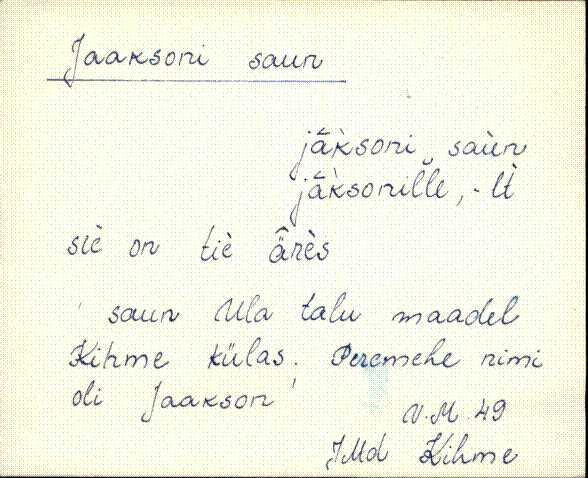 Jaaksoni saun
jāk̀soni saùn
jāk̀sonille, -lt̀
siè on tiè ä̂rès
' saun Ula talu maadel
Kihme külas. Peremehe nimi
oli Jaakson '
V.M. 49
JMd Kihme